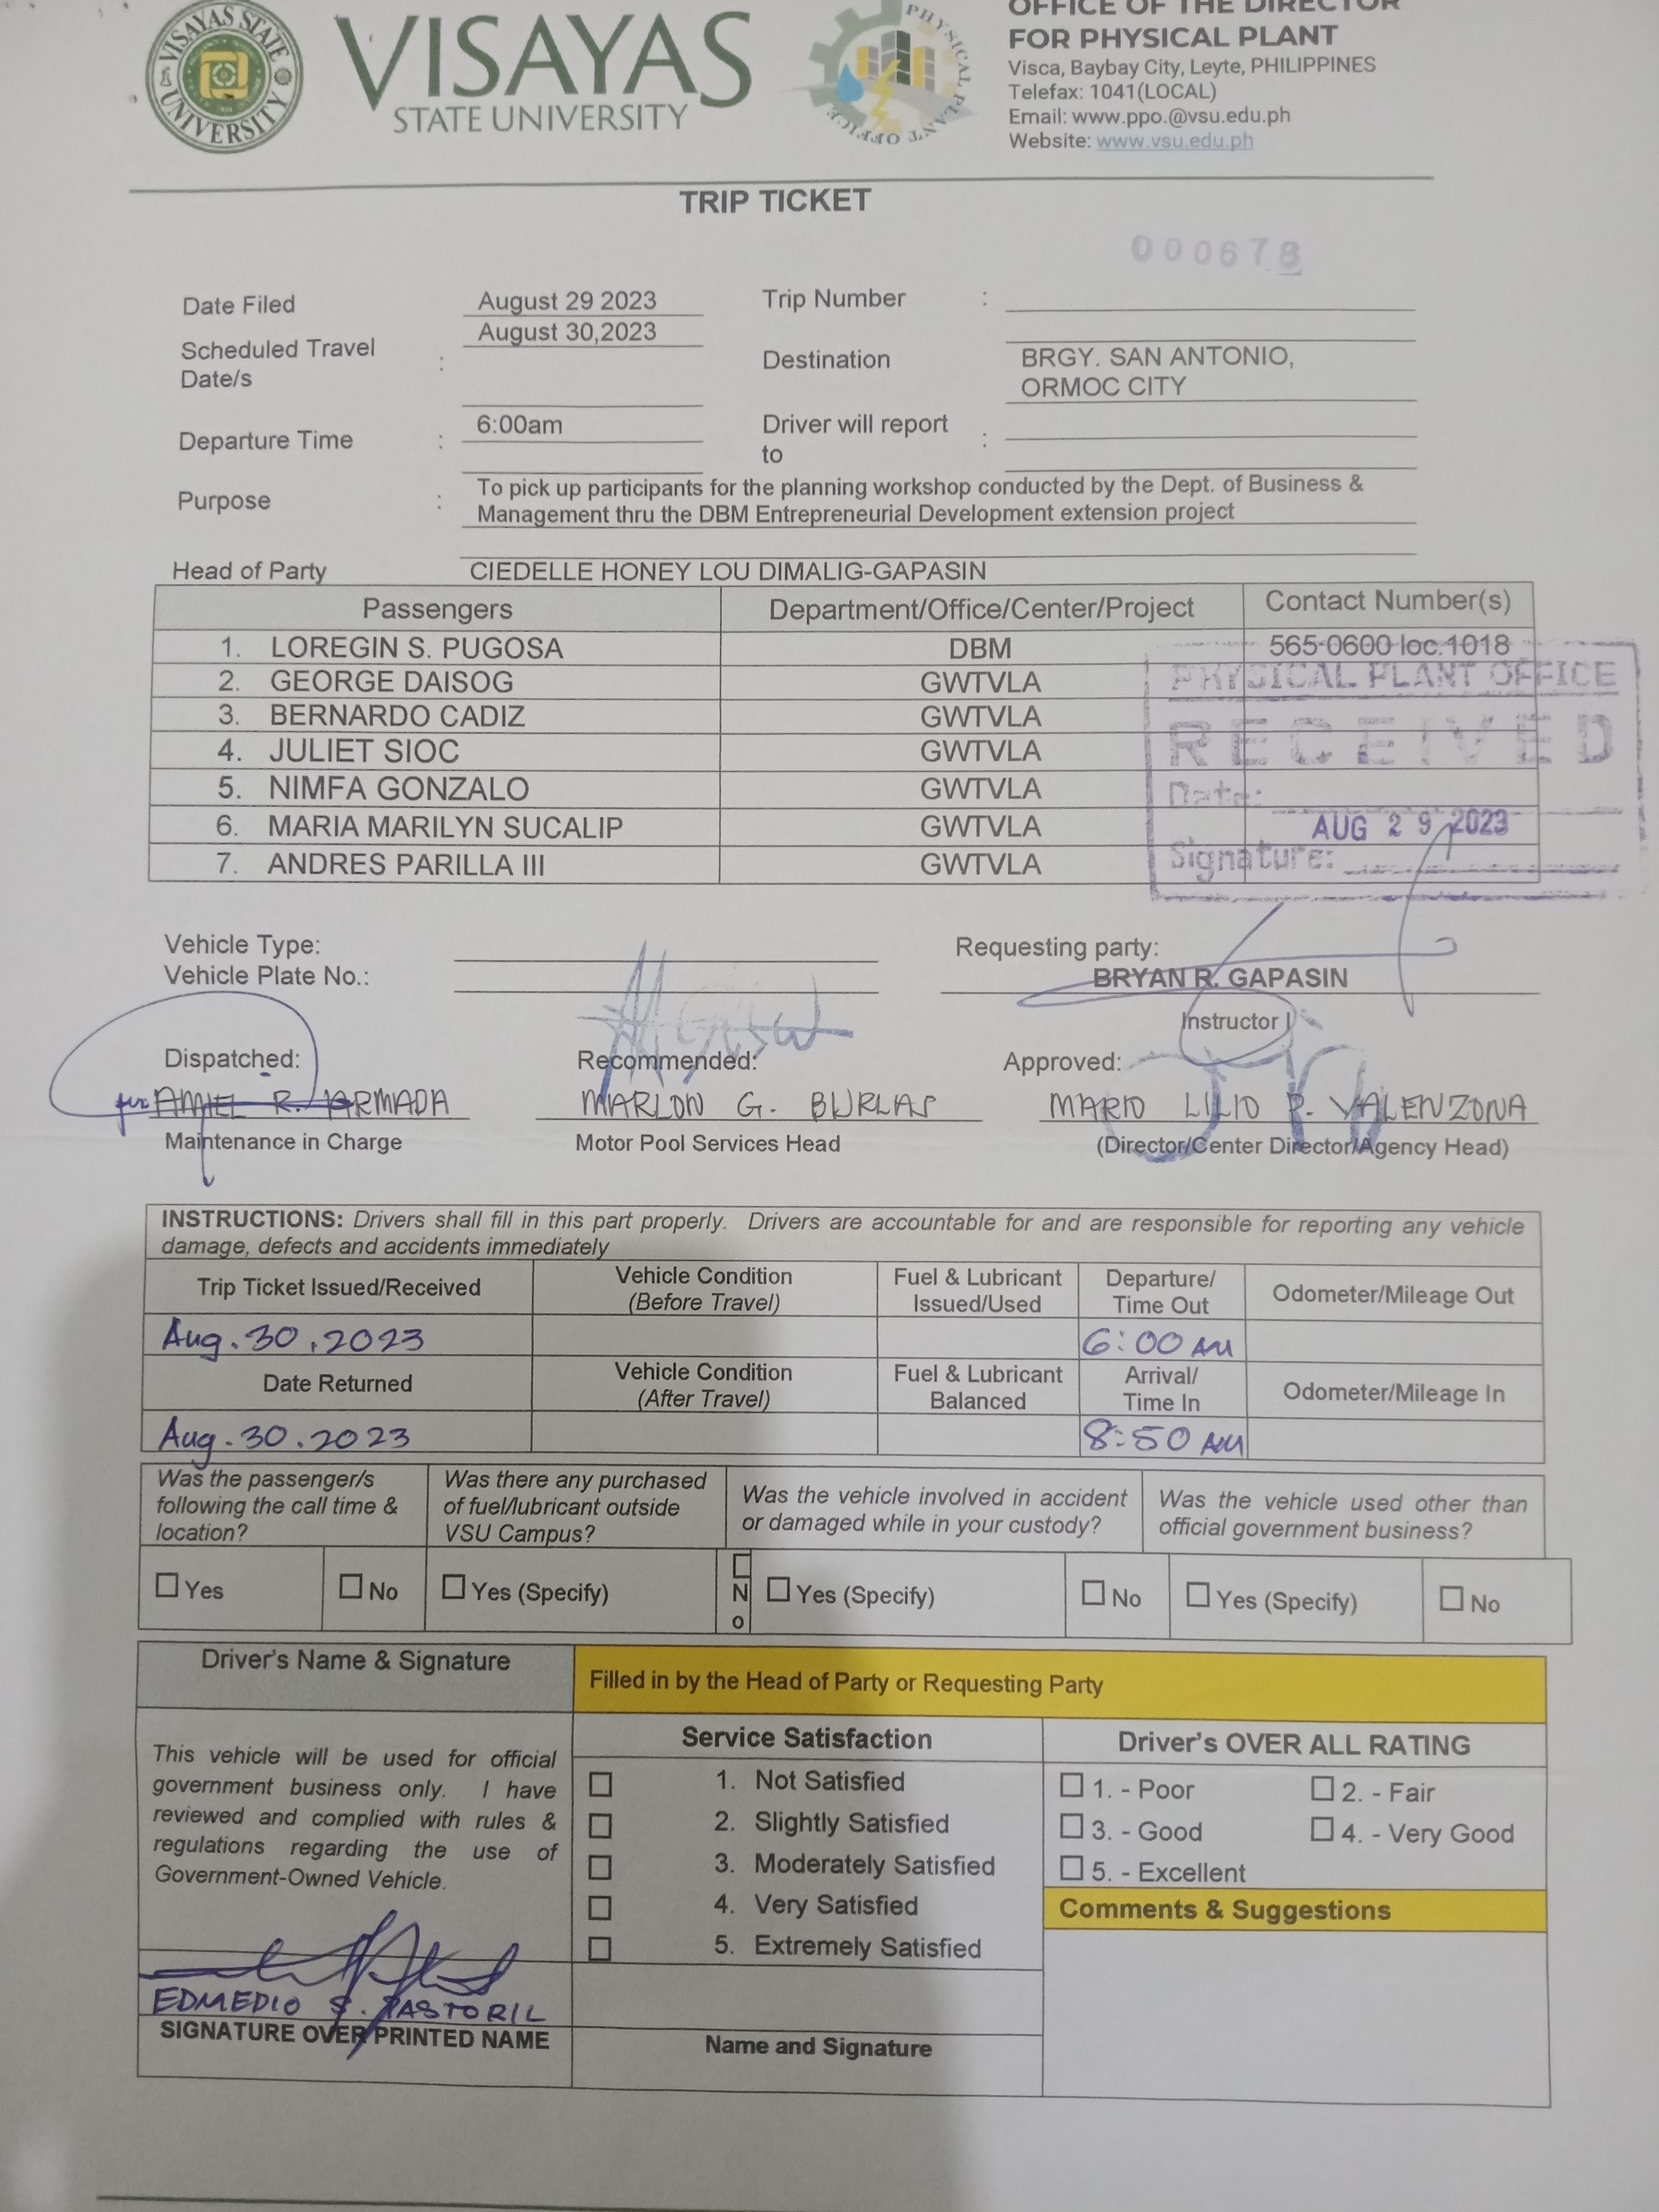 VISAYAS STATE UNIVERSITY
VISAYAS
STATE UNIVERSITY
PHYSICAL PLANT OFFICE
OFFICE OF THE DIRECTOR
FOR PHYSICAL PLANT
Visca, Baybay City, Leyte, PHILIPPINES
Telefax: 1041(LOCAL)
Email: www.ppo.@vsu.edu.ph
Website: www.vsu.edu.ph
TRIP TICKET
000678
Date Filed August 29 2023 Trip Number :
Scheduled Travel Date/s : August 30,2023 Destination BRGY. SAN ANTONIO,
ORMOC CITY
Departure Time : 6:00am Driver will report to :
Purpose : To pick up participants for the planning workshop conducted by the Dept. of Business &
Management thru the DBM Entrepreneurial Development extension project
Head of Party CIEDELLE HONEY LOU DIMALIG-GAPASIN
Passengers Department/Office/Center/Project Contact Number(s)
1. LOREGIN S. PUGOSA DBM 565-0600 loc.1018
2. GEORGE DAISOG GWTVLA
3. BERNARDO CADIZ GWTVLA
4. JULIET SIOC GWTVLA
5. NIMFA GONZALO GWTVLA
6. MARIA MARILYN SUCALIP GWTVLA
7. ANDRES PARILLA III GWTVLA
PHYSICAL PLANT OFFICE
RECEIVED
Date:
AUG 29 2023
Signature:
Vehicle Type:
Vehicle Plate No.:
Requesting party:
BRYAN R. GAPASIN
Instructor I
Dispatched: Recommended: Approved:
for AMIEL R. ARMADA MARLON G. BURLAS MARIO LILIO P. VALENZONA
Maintenance in Charge Motor Pool Services Head (Director/Center Director/Agency Head)
INSTRUCTIONS: Drivers shall fill in this part properly. Drivers are accountable for and are responsible for reporting any vehicle
damage, defects and accidents immediately
Trip Ticket Issued/Received Vehicle Condition (Before Travel) Fuel & Lubricant Issued/Used Departure/ Time Out Odometer/Mileage Out
Aug. 30, 2023 6:00 AM
Date Returned Vehicle Condition (After Travel) Fuel & Lubricant Balanced Arrival/ Time In Odometer/Mileage In
Aug. 30. 2023 8:50 AM
Was the passenger/s following the call time & location? Was there any purchased of fuel/lubricant outside VSU Campus? Was the vehicle involved in accident or damaged while in your custody? Was the vehicle used other than official government business?
Yes No Yes (Specify) No Yes (Specify) No Yes (Specify) No
Driver's Name & Signature
Filled in by the Head of Party or Requesting Party
This vehicle will be used for official
government business only. I have
reviewed and complied with rules &
regulations regarding the use of
Government-Owned Vehicle.
EDMEDIO S. PASTORIL
SIGNATURE OVER PRINTED NAME
Service Satisfaction
1. Not Satisfied
2. Slightly Satisfied
3. Moderately Satisfied
4. Very Satisfied
5. Extremely Satisfied
Name and Signature
Driver's OVER ALL RATING
1. - Poor 2. - Fair
3. - Good 4. - Very Good
5. - Excellent
Comments & Suggestions